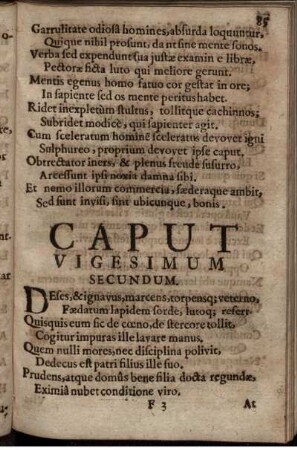 85
Garrulitate odiosâ homines, absurda loquuntur,
Quique nihil prosunt, da nt sine mente sonos.
Verba sed expendunt sua justæ examin e libræ,
Pectora ficta luto qui meliore gerunt.
Mentis egenus homo fatuo cor gestat in ore;
In sapiente sed os mente peritus habet.
Ridet inexpletùm stultus, tollitque cachinnos;
Subridet modicè, qui sapienter agit.
Cum sceleratum hominẽ sceleratus devovet igni
Sulphureo, proprium devovet ipse caput.
Obtrectator iners, & plenus fraude susurro,
Arcessunt ipsi noxia damna sibi.
Et nemo illorum commercia, fæderaque ambit,
Sed sunt invisi, sint ubicunque, bonis.
CAPUT
VIGESIMUM
SECUNDUM.
DEses, & ignavus, marcens, torpensq; veterno,
Fœdatum lapidem sorde, lutoq; refert
Quisquis eum sic de cœno, de stercore tollit,
Cogitur impuras ille lavare manus.
Quem nulli mores, nec disciplina polivit,
Dedecus est patri filius ille suo.
Prudens, atque domûs bene filia docta regundæ,
Eximiâ nubet conditione viro.
F 3 At